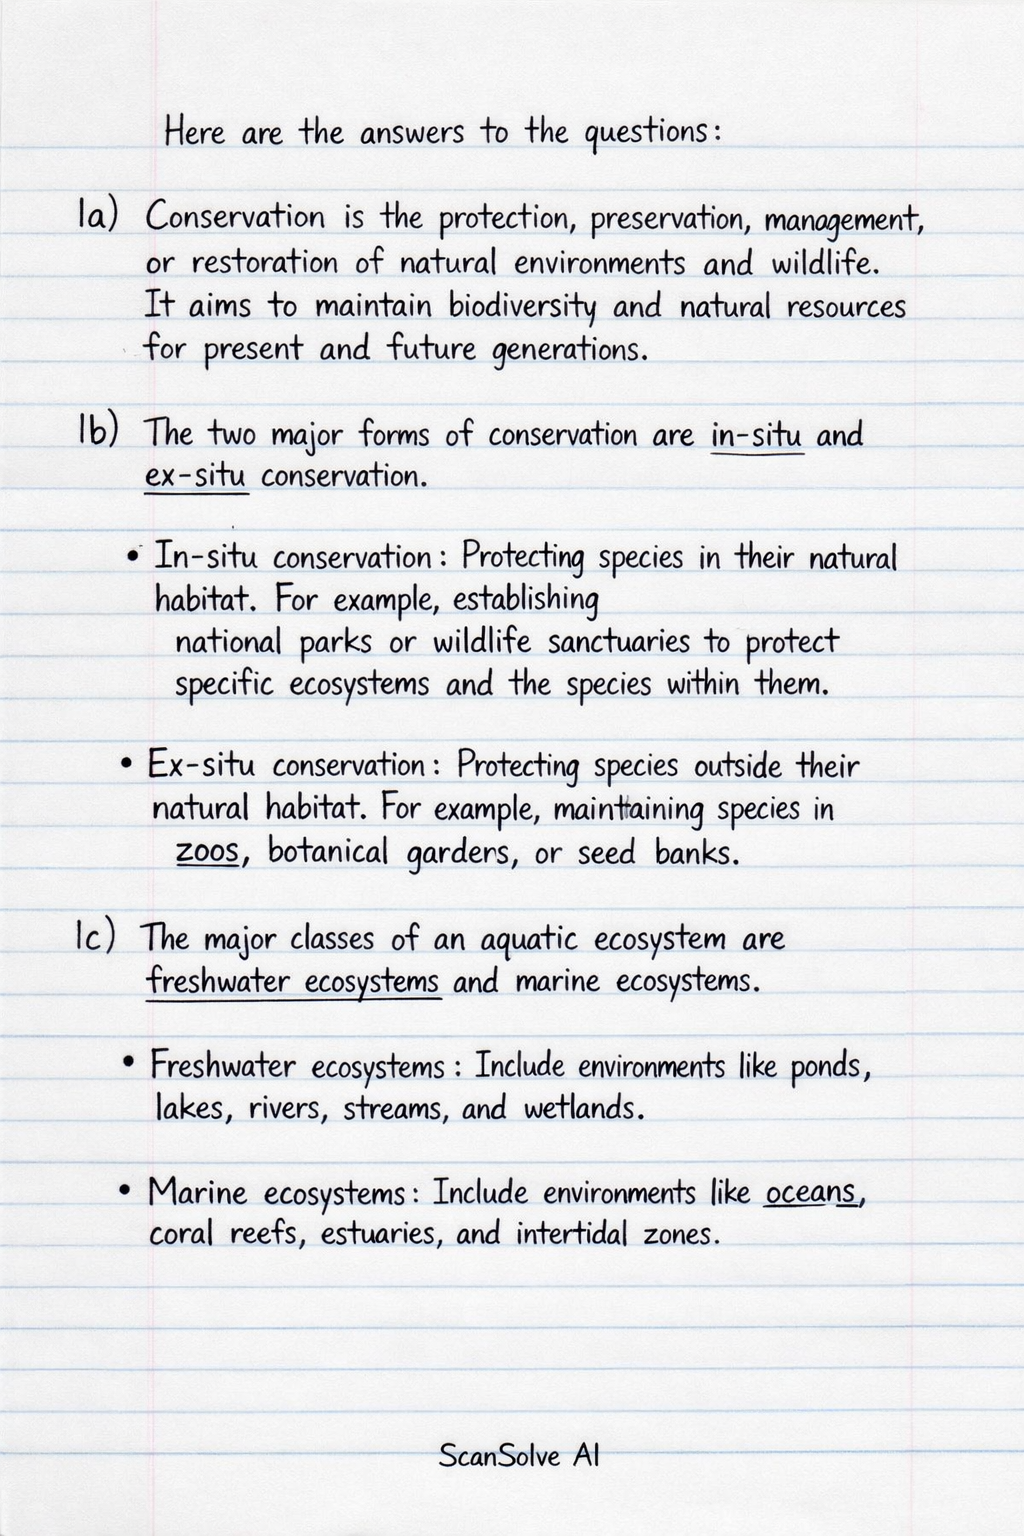 Here are the answers to the questions:
1a) Conservation is the protection, preservation, management,
or restoration of natural environments and wildlife.
It aims to maintain biodiversity and natural resources
for present and future generations.
1b) The two major forms of conservation are in-situ and
ex-situ conservation.
• In-situ conservation: Protecting species in their natural
habitat. For example, establishing
national parks or wildlife sanctuaries to protect
specific ecosystems and the species within them.
• Ex-situ conservation: Protecting species outside their
natural habitat. For example, maintaining species in
zoos, botanical gardens, or seed banks.
1c) The major classes of an aquatic ecosystem are
freshwater ecosystems and marine ecosystems.
• Freshwater ecosystems: Include environments like ponds,
lakes, rivers, streams, and wetlands.
• Marine ecosystems: Include environments like oceans,
coral reefs, estuaries, and intertidal zones.
ScanSolve AI